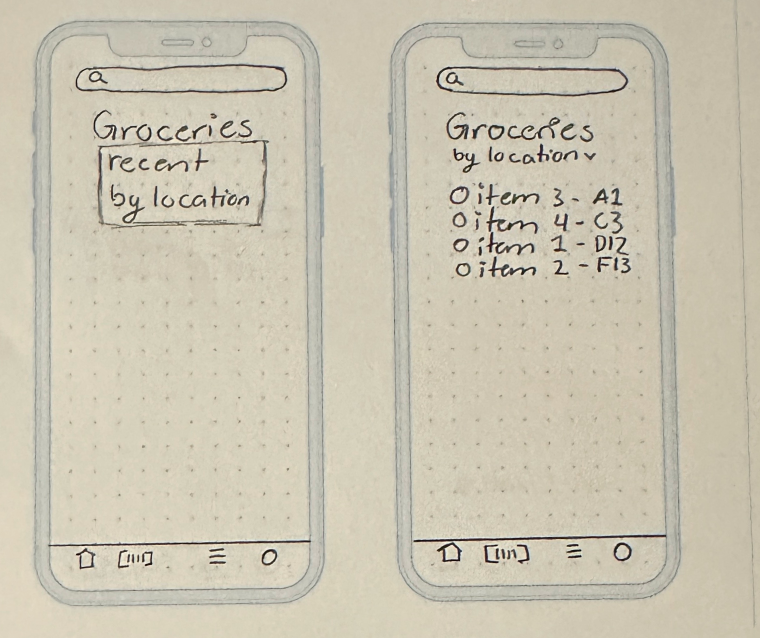 Groceries
recent
by location
Groceries
by location
item 3 - A1
item 4 - C3
item 1 - D12
item 2 - F13